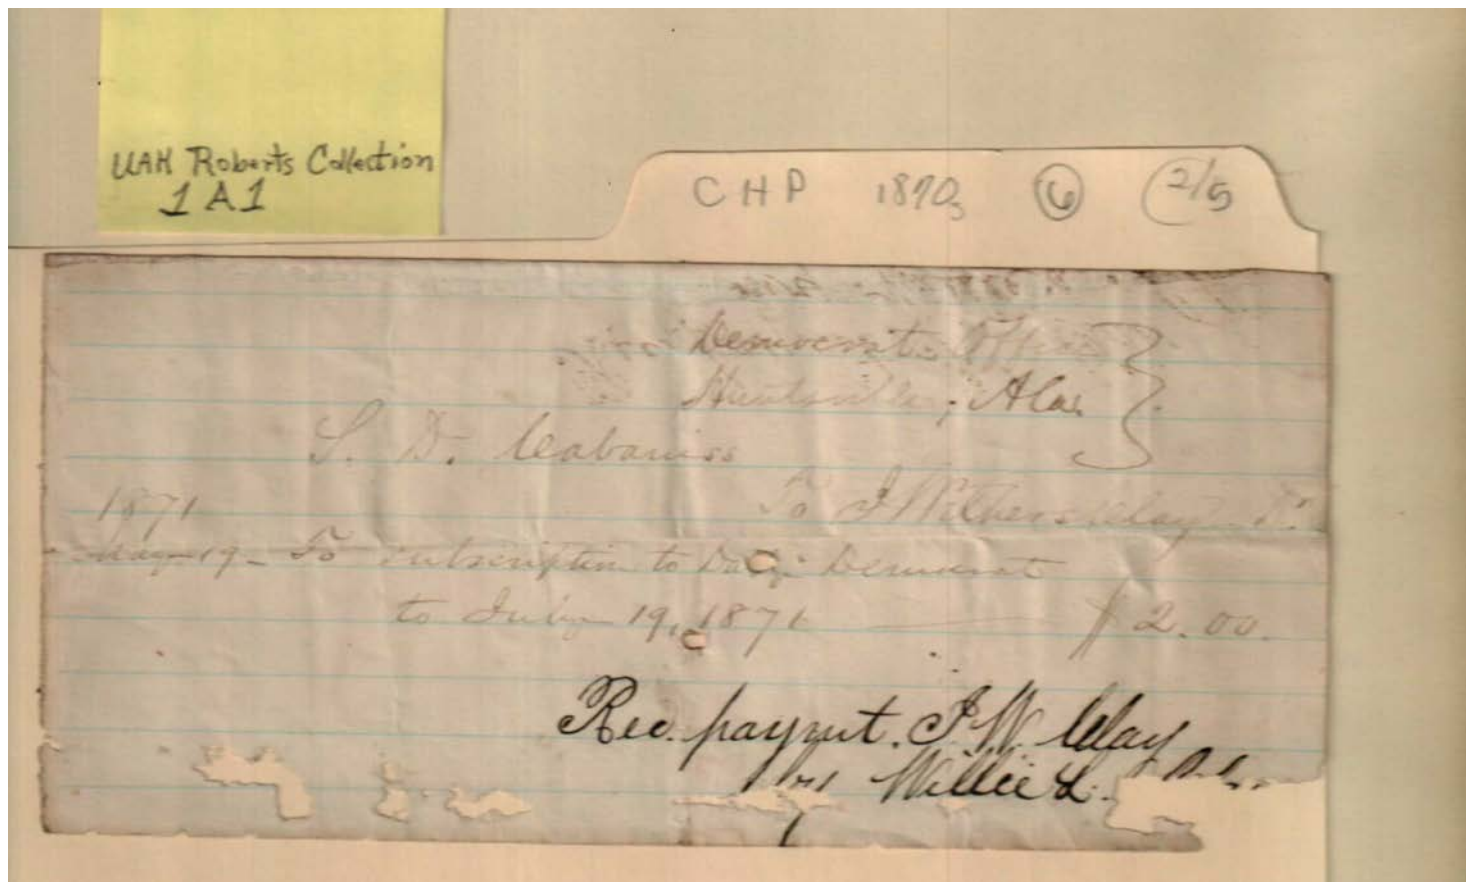 UAH Roberts Collection
1A1
CHP 1870s 6 2/5
Democrat Office
Huntsville, Ala.
S. D. Cabaniss
To J Withers Clay Dr
1871
May 19 - To subscription to Daily Democrat
to July 19, 1871 $2.00.
Rec. paymt. J W Clay
by Willie L.